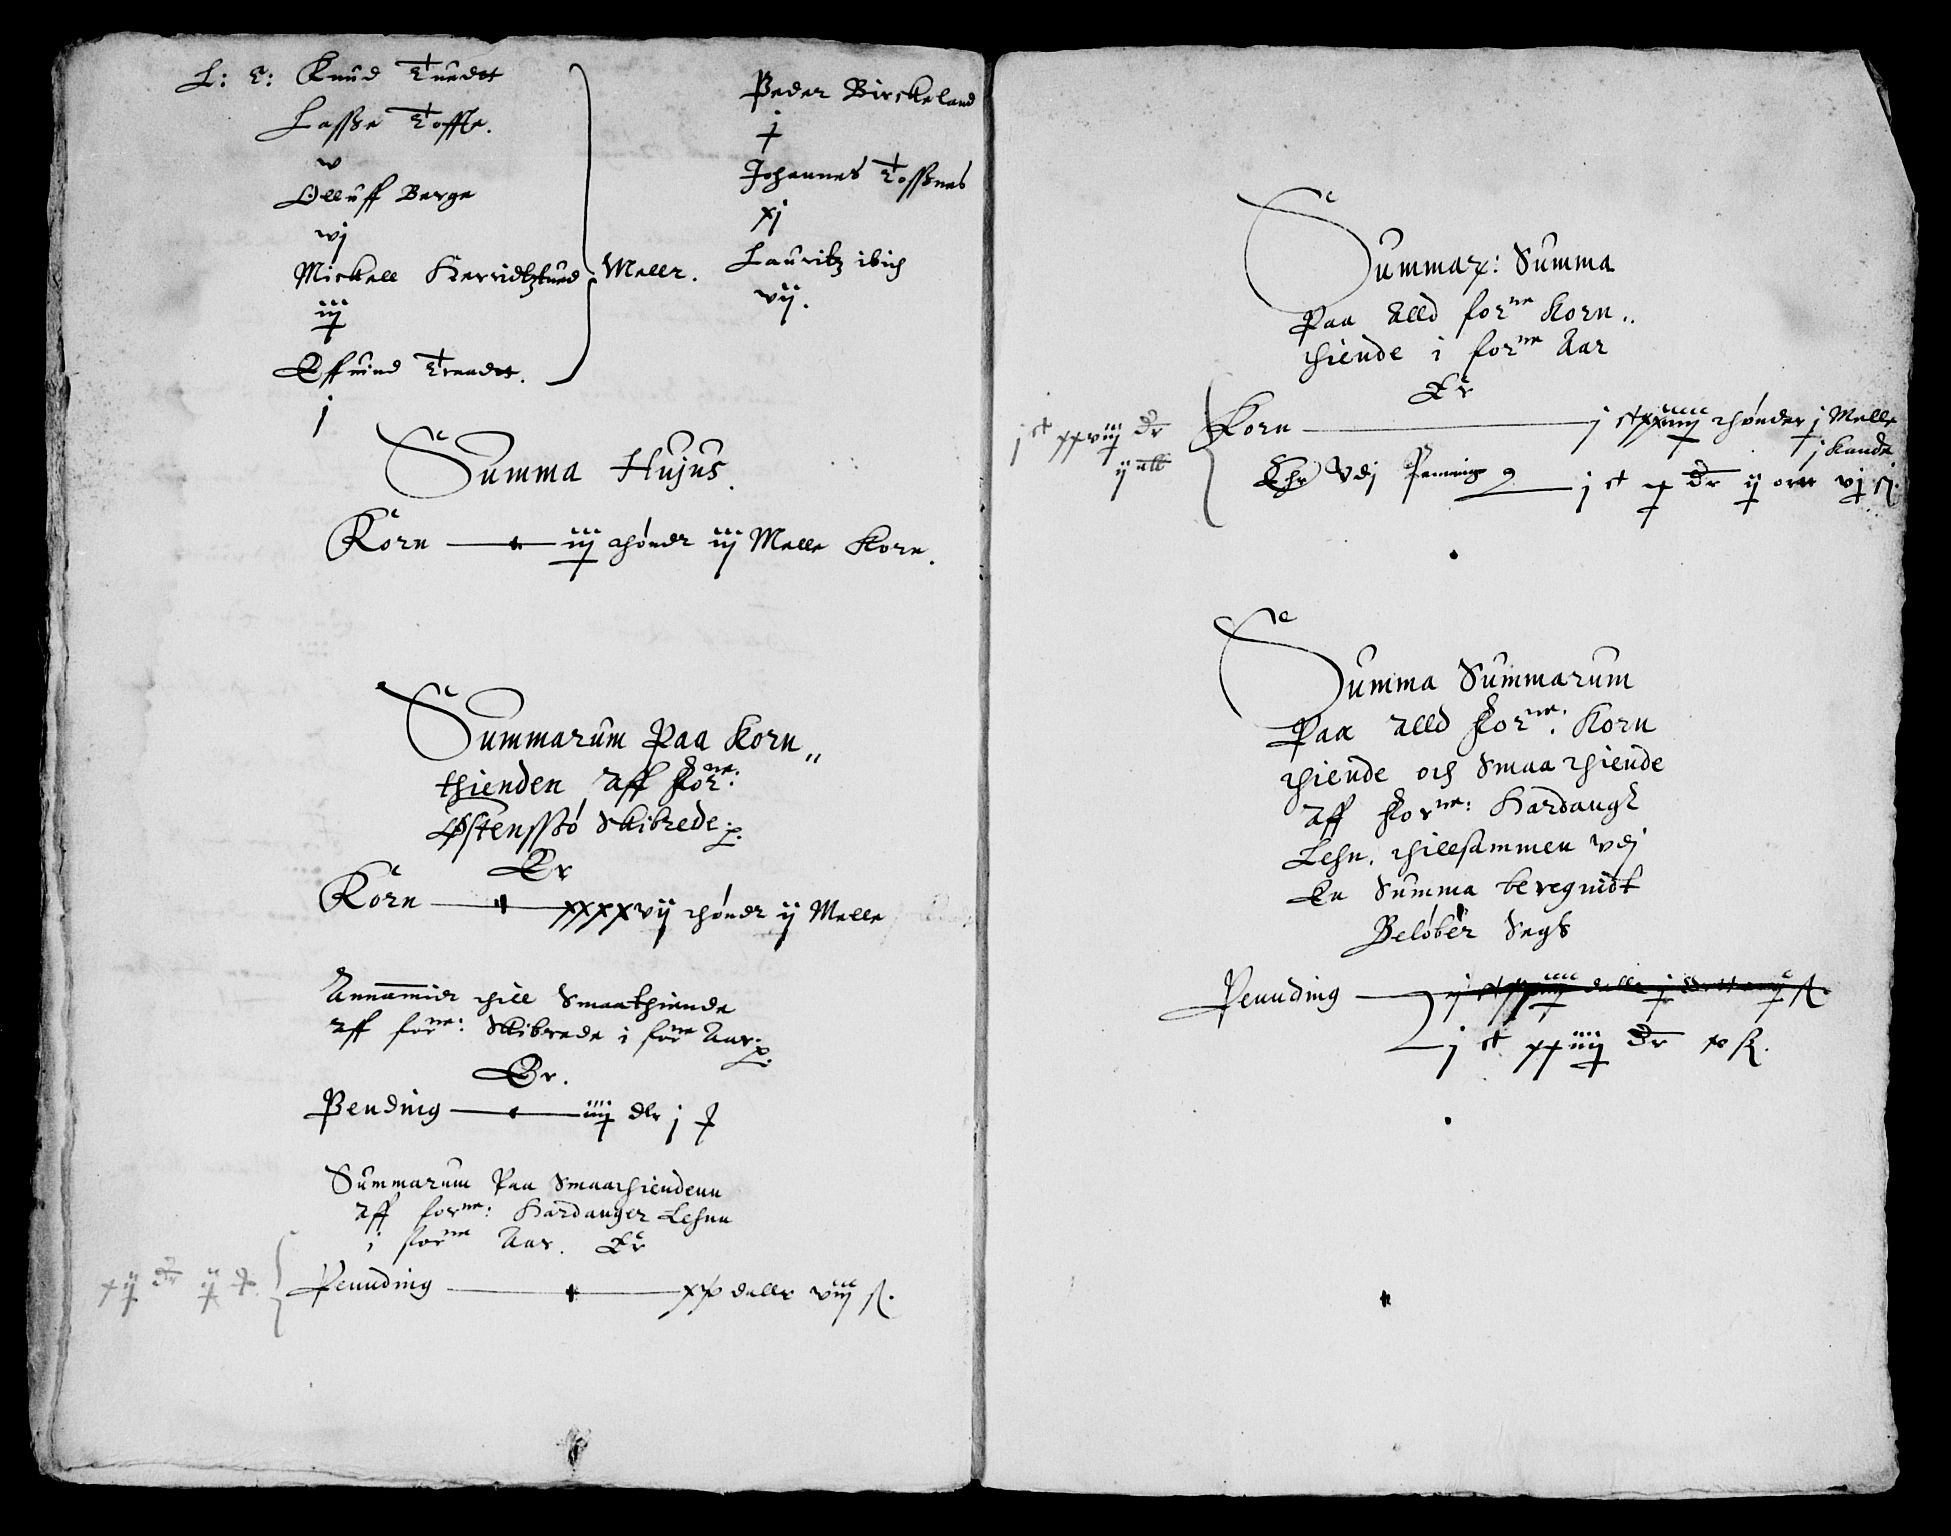 L: T: Knud Tuedtt
Lasse Toffte.
v
Olluff Berge
vj
Mickell Herridtztued
iij
Effuind Traadtt.
j
Meller.
Peder Birckeland
j
Johannes Tossnes
xj
Lauritz ibid
vij.
Summa Hujus.
Korn — iij thønder iij Melle Korn.
Summarum Paa Korn,,
thienden Aff for^ne:
Østenssø Skibrede
Er
Korn — xxxxvij thønder ij Melle
Annammidt thill Smaathiende
aff for^ne: Skibrede i for^ne Aar
Er.
Pending — iiij dlr j
Summarum Paa Smaathiendenn
aff for^ne: Hardanger Lehnn
i for^ne Aar. Er
Pennding — daller viij sk.
Summar: Summa
Paa Alld for^ne Korn..
thiende i for^ne Aar
Er
j ct xxviij dr
Korn — j ct thønder j Melle
j Kande
Ehr Vdj Penninge — j ct x dr ij ortt vj sk.
Summa Summarum
Paa alld for^ne: Korn
thiende och Smaa thiende
aff for^ne: Hardangr
Lehn, thillsammen vdj
En Summa beregnidt
Beløber Segh
Pennding —
j ct xxiiij dr x sk.